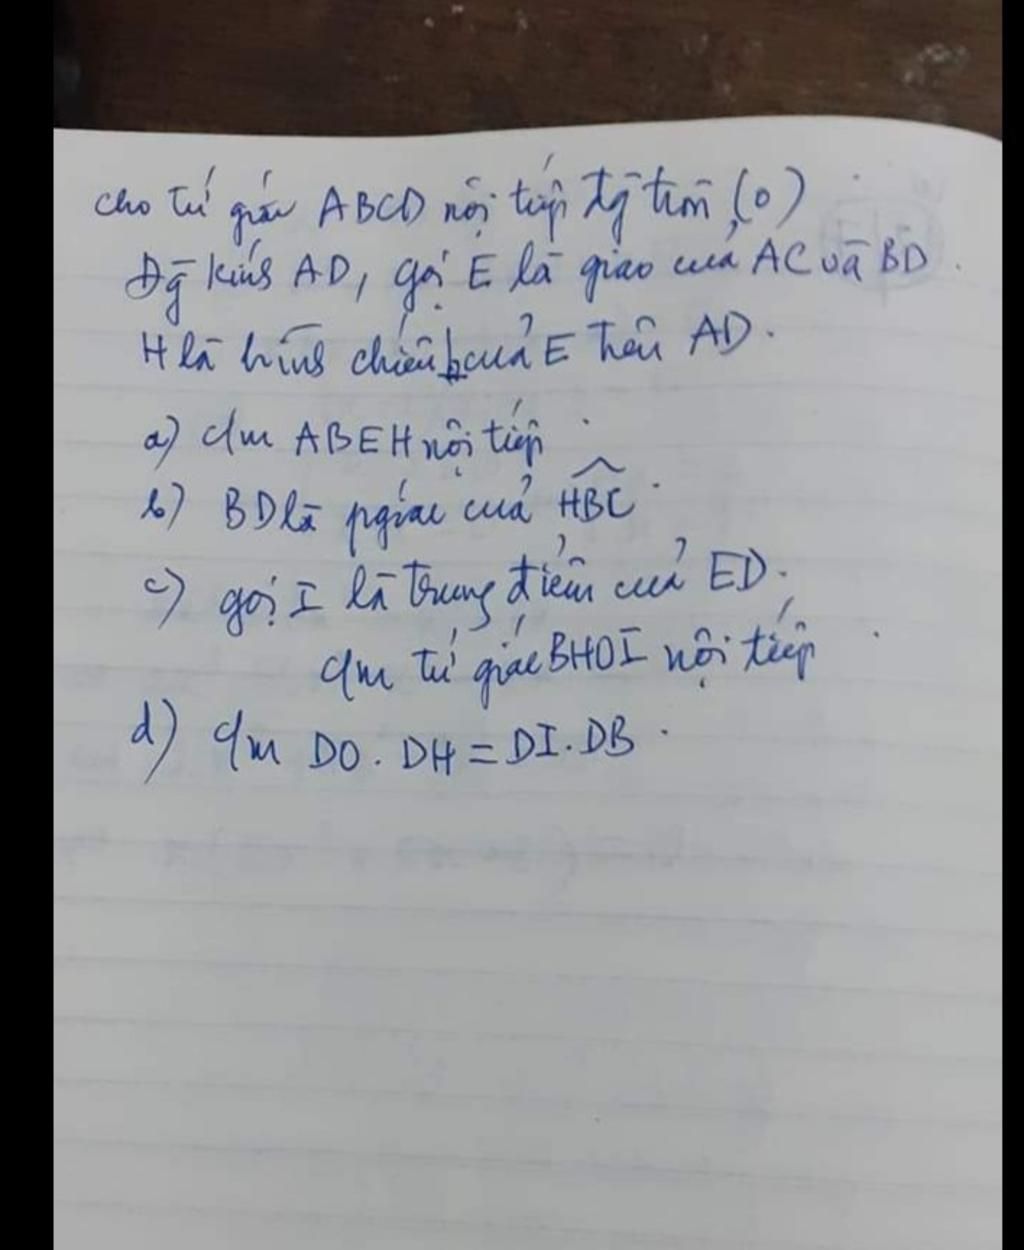 cho tứ giác ABCD nội tiếp đg tròn (O)
Đg kính AD, gọi E là giao của AC và BD.
H là hình chiếu của E trên AD.
a) c/m ABEH nội tiếp
b) BD là pgiác của \widehat{HBC}.
c) gọi I là trung điểm của ED.
c/m tứ giác BHOI nội tiếp
d) c/m DO. DH = DI. DB.